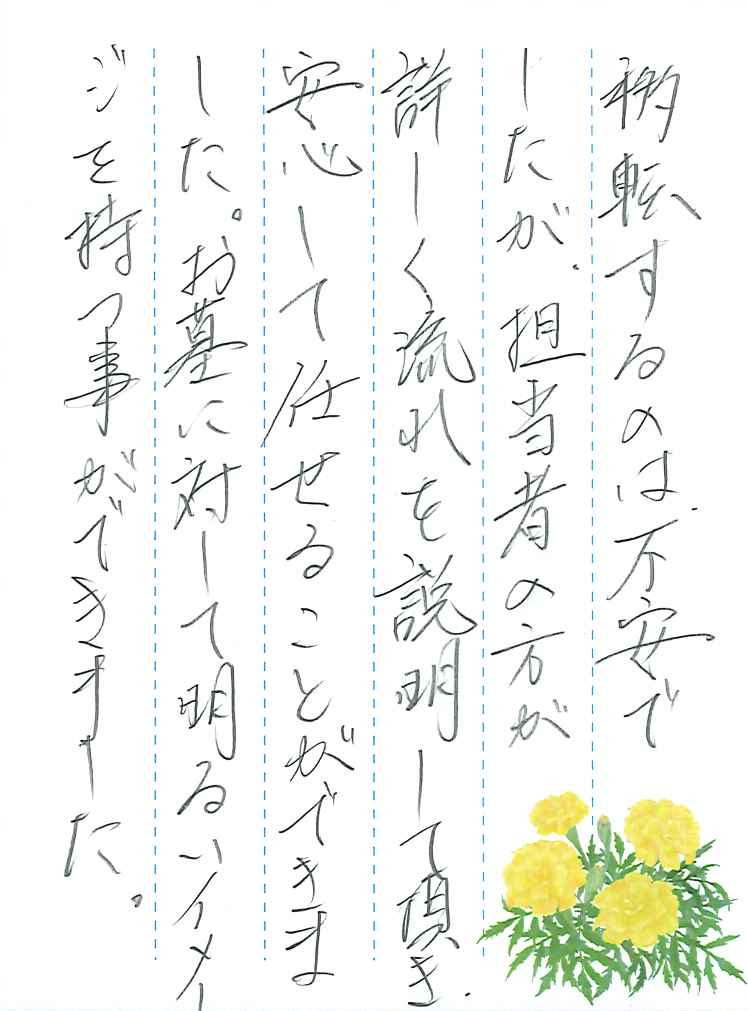 移転するのは、不安で
したが、担当者の方が
詳しく流れを説明して頂き、
安心して任せることができま
した。お墓に対して明るいイメー
ジを持つ事ができました。